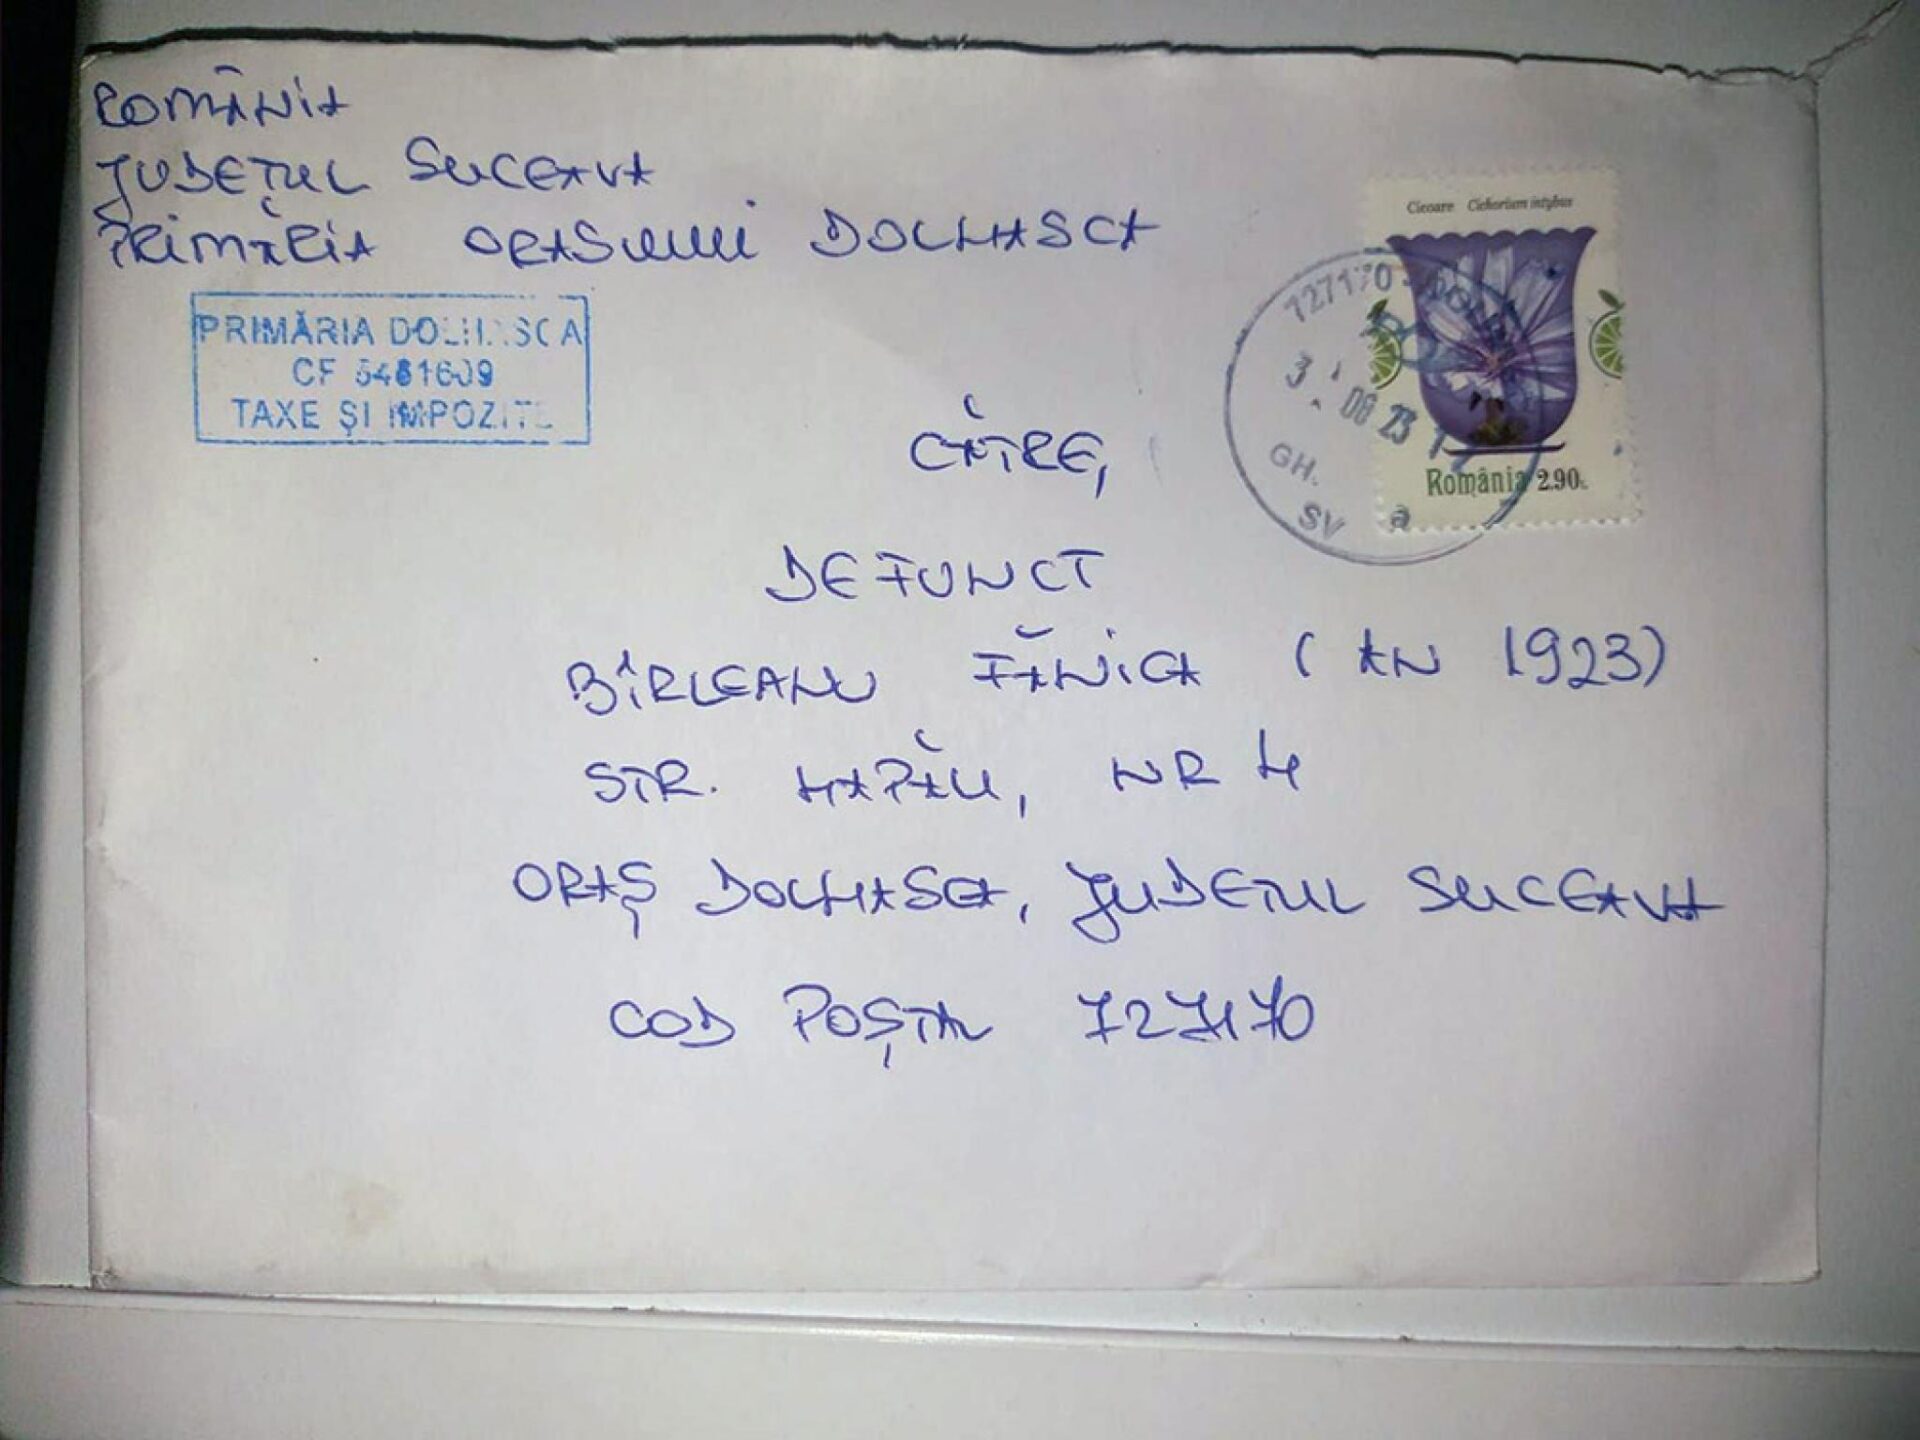 ROMÂNIA
JUDEȚUL SUCEAVA
PRIMĂRIA ORASULUI DOLHASCA
PRIMĂRIA DOLHASCA
CF 5481609
TAXE ȘI IMPOZITE
Cicoare Cichorium intybus
727170
3 08 23
GH.
SV
a
România 2.90L
CĂTRE,
DEFUNCT
BÎRLEANU FĂNICA (AN 1923)
STR. HAPĂU, NR 4
ORAȘ DOLHASCA, JUDETUL SUCEAVA
COD POȘTAL 727170